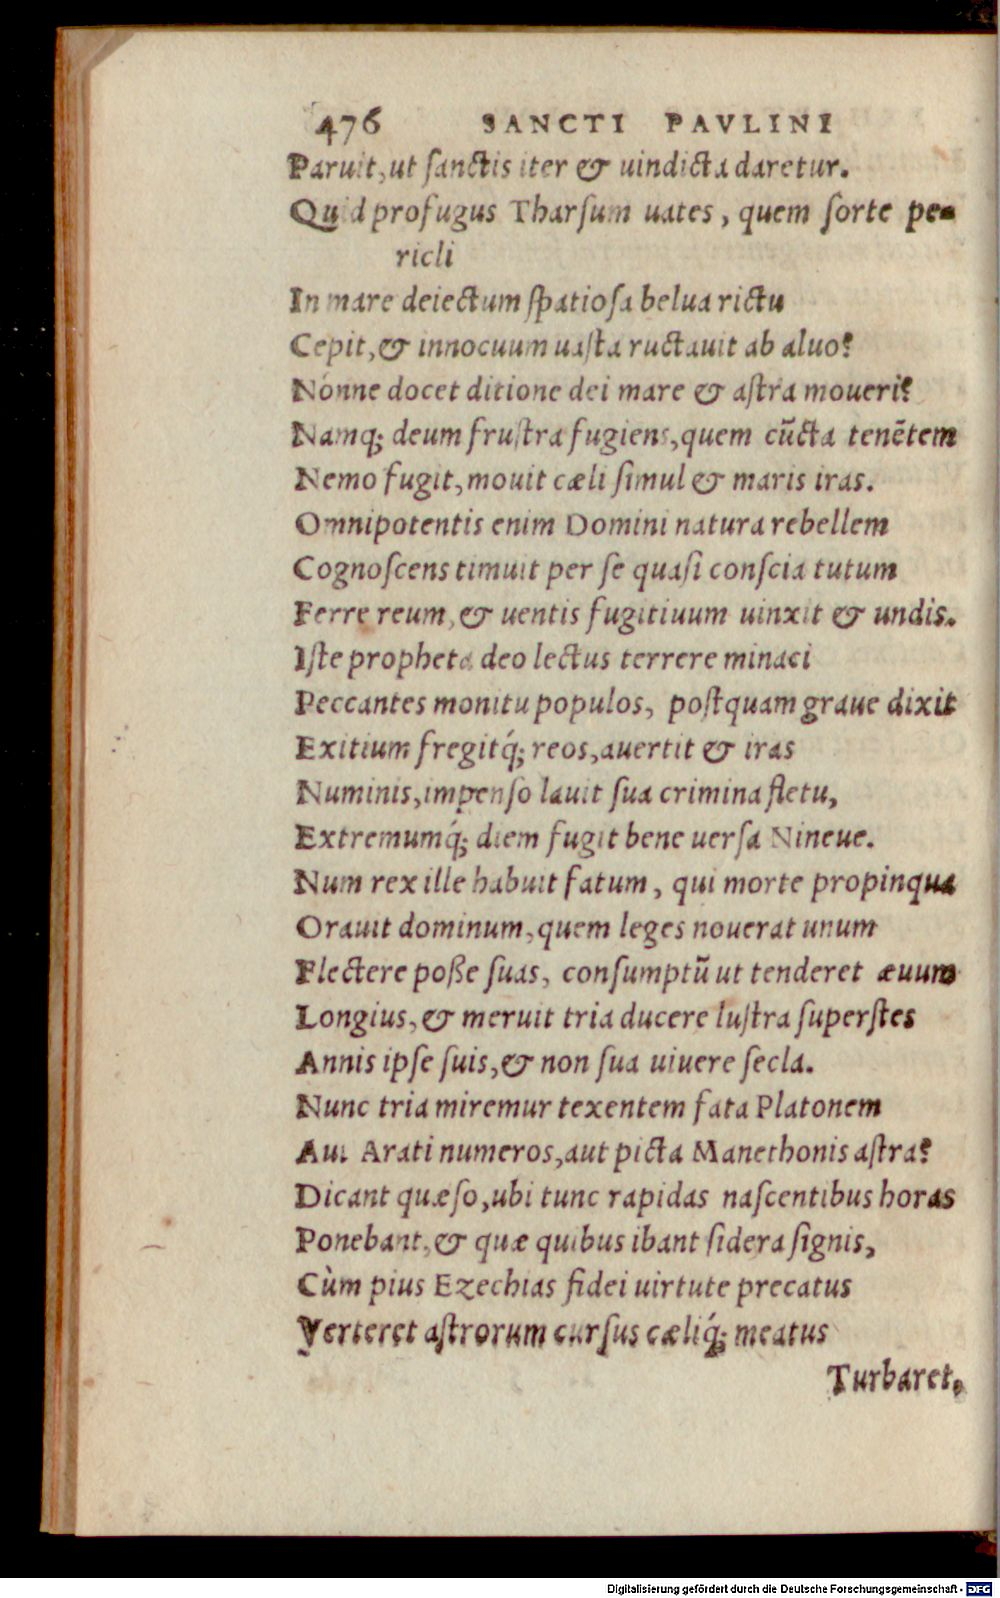 476 SANCTI PAVLINI
Paruit, ut ſanctis iter & uindicta daretur.
Quid profugus Tharſum uates, quem ſorte pe-
ricli
In mare deiectum ſpatioſa belua rictu
Cepit, & innocuum uaſta ructauit ab aluo?
Nónne docet ditione dei mare & aſtra moueri?
Namq; deum fruſtra fugiens, quem cũcta tenẽtem
Nemo fugit, mouit cæli ſimul & maris iras.
Omnipotentis enim Domini natura rebellem
Cognoſcens timuit per ſe quaſi conſcia tutum
Ferre reum, & uentis fugitiuum uinxit & undis.
Iſte propheta deo lectus terrere minaci
Peccantes monitu populos, poſtquam graue dixit
Exitium fregitq́; reos, auertit & iras
Numinis, impenſo lauit ſua crimina fletu,
Extremumq́; diem fugit bene uerſa Nineue.
Num rex ille habuit fatum, qui morte propinqua
Orauit dominum, quem leges nouerat unum
Flectere poße ſuas, conſumptũ ut tenderet æuum
Longius, & meruit tria ducere luſtra ſuperſtes
Annis ipſe ſuis, & non ſua uiuere ſecla.
Nunc tria miremur texentem fata Platonem
Aut Arati numeros, aut picta Manethonis aſtra?
Dicant quæſo, ubi tunc rapidas naſcentibus horas
Ponebant, & quæ quibus ibant ſidera ſignis,
Cùm pius Ezechias fidei uirtute precatus
Verteret aſtrorum curſus cæliq́; meatus
Turbaret,
Digitalisierung gefördert durch die Deutsche Forschungsgemeinschaft - DFG